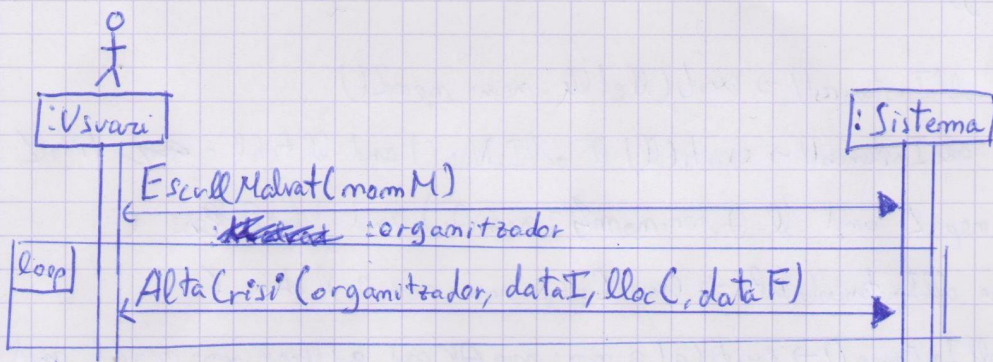 :Usuari
:Sistema
EscullMalvat(nomM)
: :organitzador
loop
AltaCrisi (organitzador, dataI, llocC, dataF)